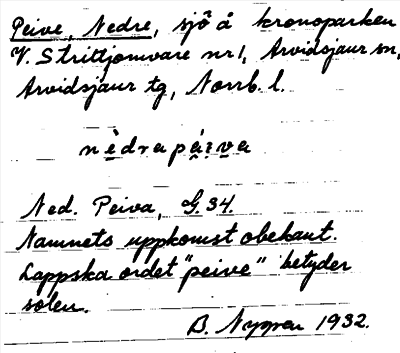 Peive, Nedre, sjö å kronoparken
V. Strittjomvare nr 1, Arvidsjaur sn,
Arvidsjaur tg, Norrb. l.
nèdrapáiva
Ned. Peiva, G. 34.
Namnets uppkomst obekant.
Lappska ordet "peive" betyder
solen.
B. Nygren 1932.